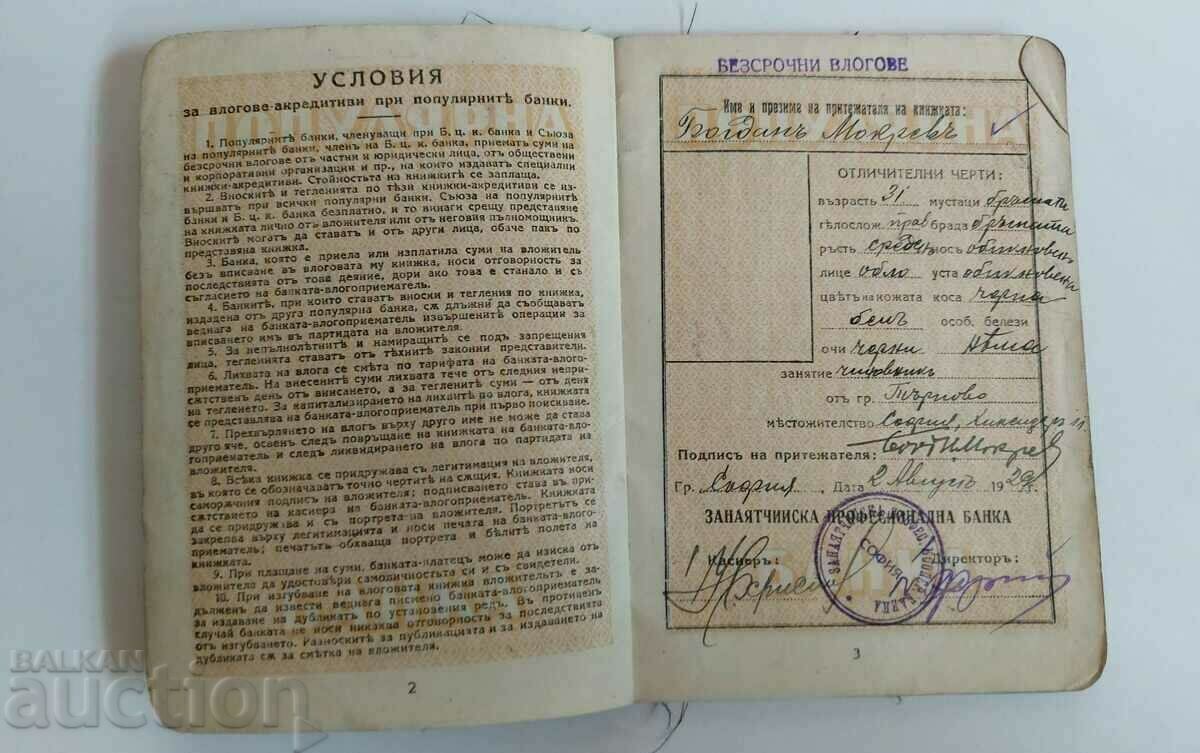 УСЛОВИЯ
за влогове-акредитиви при популярнитѣ банки.
1. Популярнитѣ банки, членуващи при Б. ц. к. банка и Съюза
на популярнитѣ банки, членъ на Б. ц. к. банка, приематъ суми на
безсрочни влогове отъ частни и юридически лица, отъ обществени
и корпоративни организации и пр., на които издаватъ специални
книжки-акредитиви. Стойностьта на книжкитѣ се заплаща.
2. Вноскитѣ и тегленията по тѣзи книжки-акредитиви се из-
вършватъ при всички популярни банки, Съюза на популярнитѣ
банки и Б. ц. к. банка безплатно, и то винаги срещу представяне
на книжката лично отъ вложителя или отъ неговия пълномощникъ.
Вноскитѣ могатъ да ставатъ и отъ други лица, обаче пакъ по
представяна книжка.
3. Банка, която е приела или изплатила суми на вложитель
безъ вписване въ влоговата му книжка, носи отговорность за
последствията отъ това деяние, дори ако това е станало и съ
съгласието на банката-влогоприематель.
4. Банкитѣ, при които ставатъ вноски и тегления по книжка,
издадена отъ друга популярна банка, сѫ длъжни да съобщаватъ
веднага на банката-влогоприематель извършенитѣ операции за
вписването имъ въ партидата на вложителя.
5. За непълнолѣтнитѣ и намиращитѣ се подъ запрещения
лица, тегленията ставатъ отъ тѣхнитѣ законни представители.
6. Лихвата на влога се смѣта по тарифата на банката-влого-
приематель. На внесенитѣ суми лихвата тече отъ следния непри-
сѫтственъ день отъ внисането, а за тегленитѣ суми — отъ деня
на тегленето. За капитализирането на лихвитѣ по влога, книжката
се представлява на банката-влогоприематель при първо поискване.
7. Прехвърлянето на влогъ върху друго име не може да става
друго яче, освенъ следъ повръщане на книжката на банката-вло-
гоприематель и следъ ликвидирането на влога по партидата на
вложителя.
8. Всѣка книжка се придружава съ легитимация на вложителя,
въ която се обозначаватъ точно чертитѣ на сѫщия. Книжката носи
саморѫчния подписъ на вложителя; подписването става въ при-
сѫтствието на касиера на банката-влогоприематель. Книжката може
да се придружи и съ портрета на вложителя. Портретътъ се
закрепва върху легитимацията и носи печата на банката-влого-
приематель; печатътъ обхваща портрета и бѣлитѣ полета на
книжката.
9. При плащане на суми, банката-платецъ може да изиска отъ
вложителя да удостовѣри самоличностьта си и съ свидетели.
10. При изгубване на влоговата книжка вложительтъ е за-
длъженъ да извести веднага писмено банката-влогоприематель
за издаване на дубликатъ по установения редъ. Въ противенъ
случай банката не носи никаква отговорность за последствията
отъ изгубването. Разноскитѣ за публикацията и за издаването на
дубликата сѫ за смѣтка на вложителя.
2
БЕЗСРОЧНИ ВЛОГОВЕ
Име и презиме на притежателя на книжката:
Богданъ Мокревъ
ОТЛИЧИТЕЛНИ ЧЕРТИ:
възрасть 31 мустаци
тѣлослож. прав брада
ръстъ среденъ носъ обикновенъ
лице обло уста обикновени
цвѣтъ на кожата коса черна
бѣлъ особ. белези
очи черни нѣма
занятие чиновникъ
отъ гр. Търново
мѣстожителство София,
Подписъ на притежателя:
Гр. София Дата 2 Августъ 1929 г.
ЗАНАЯТЧИЙСКА ПРОФЕСИОНАЛНА БАНКА
Касиеръ: Директоръ:
СОФИЯ
3
BALKAN
auction